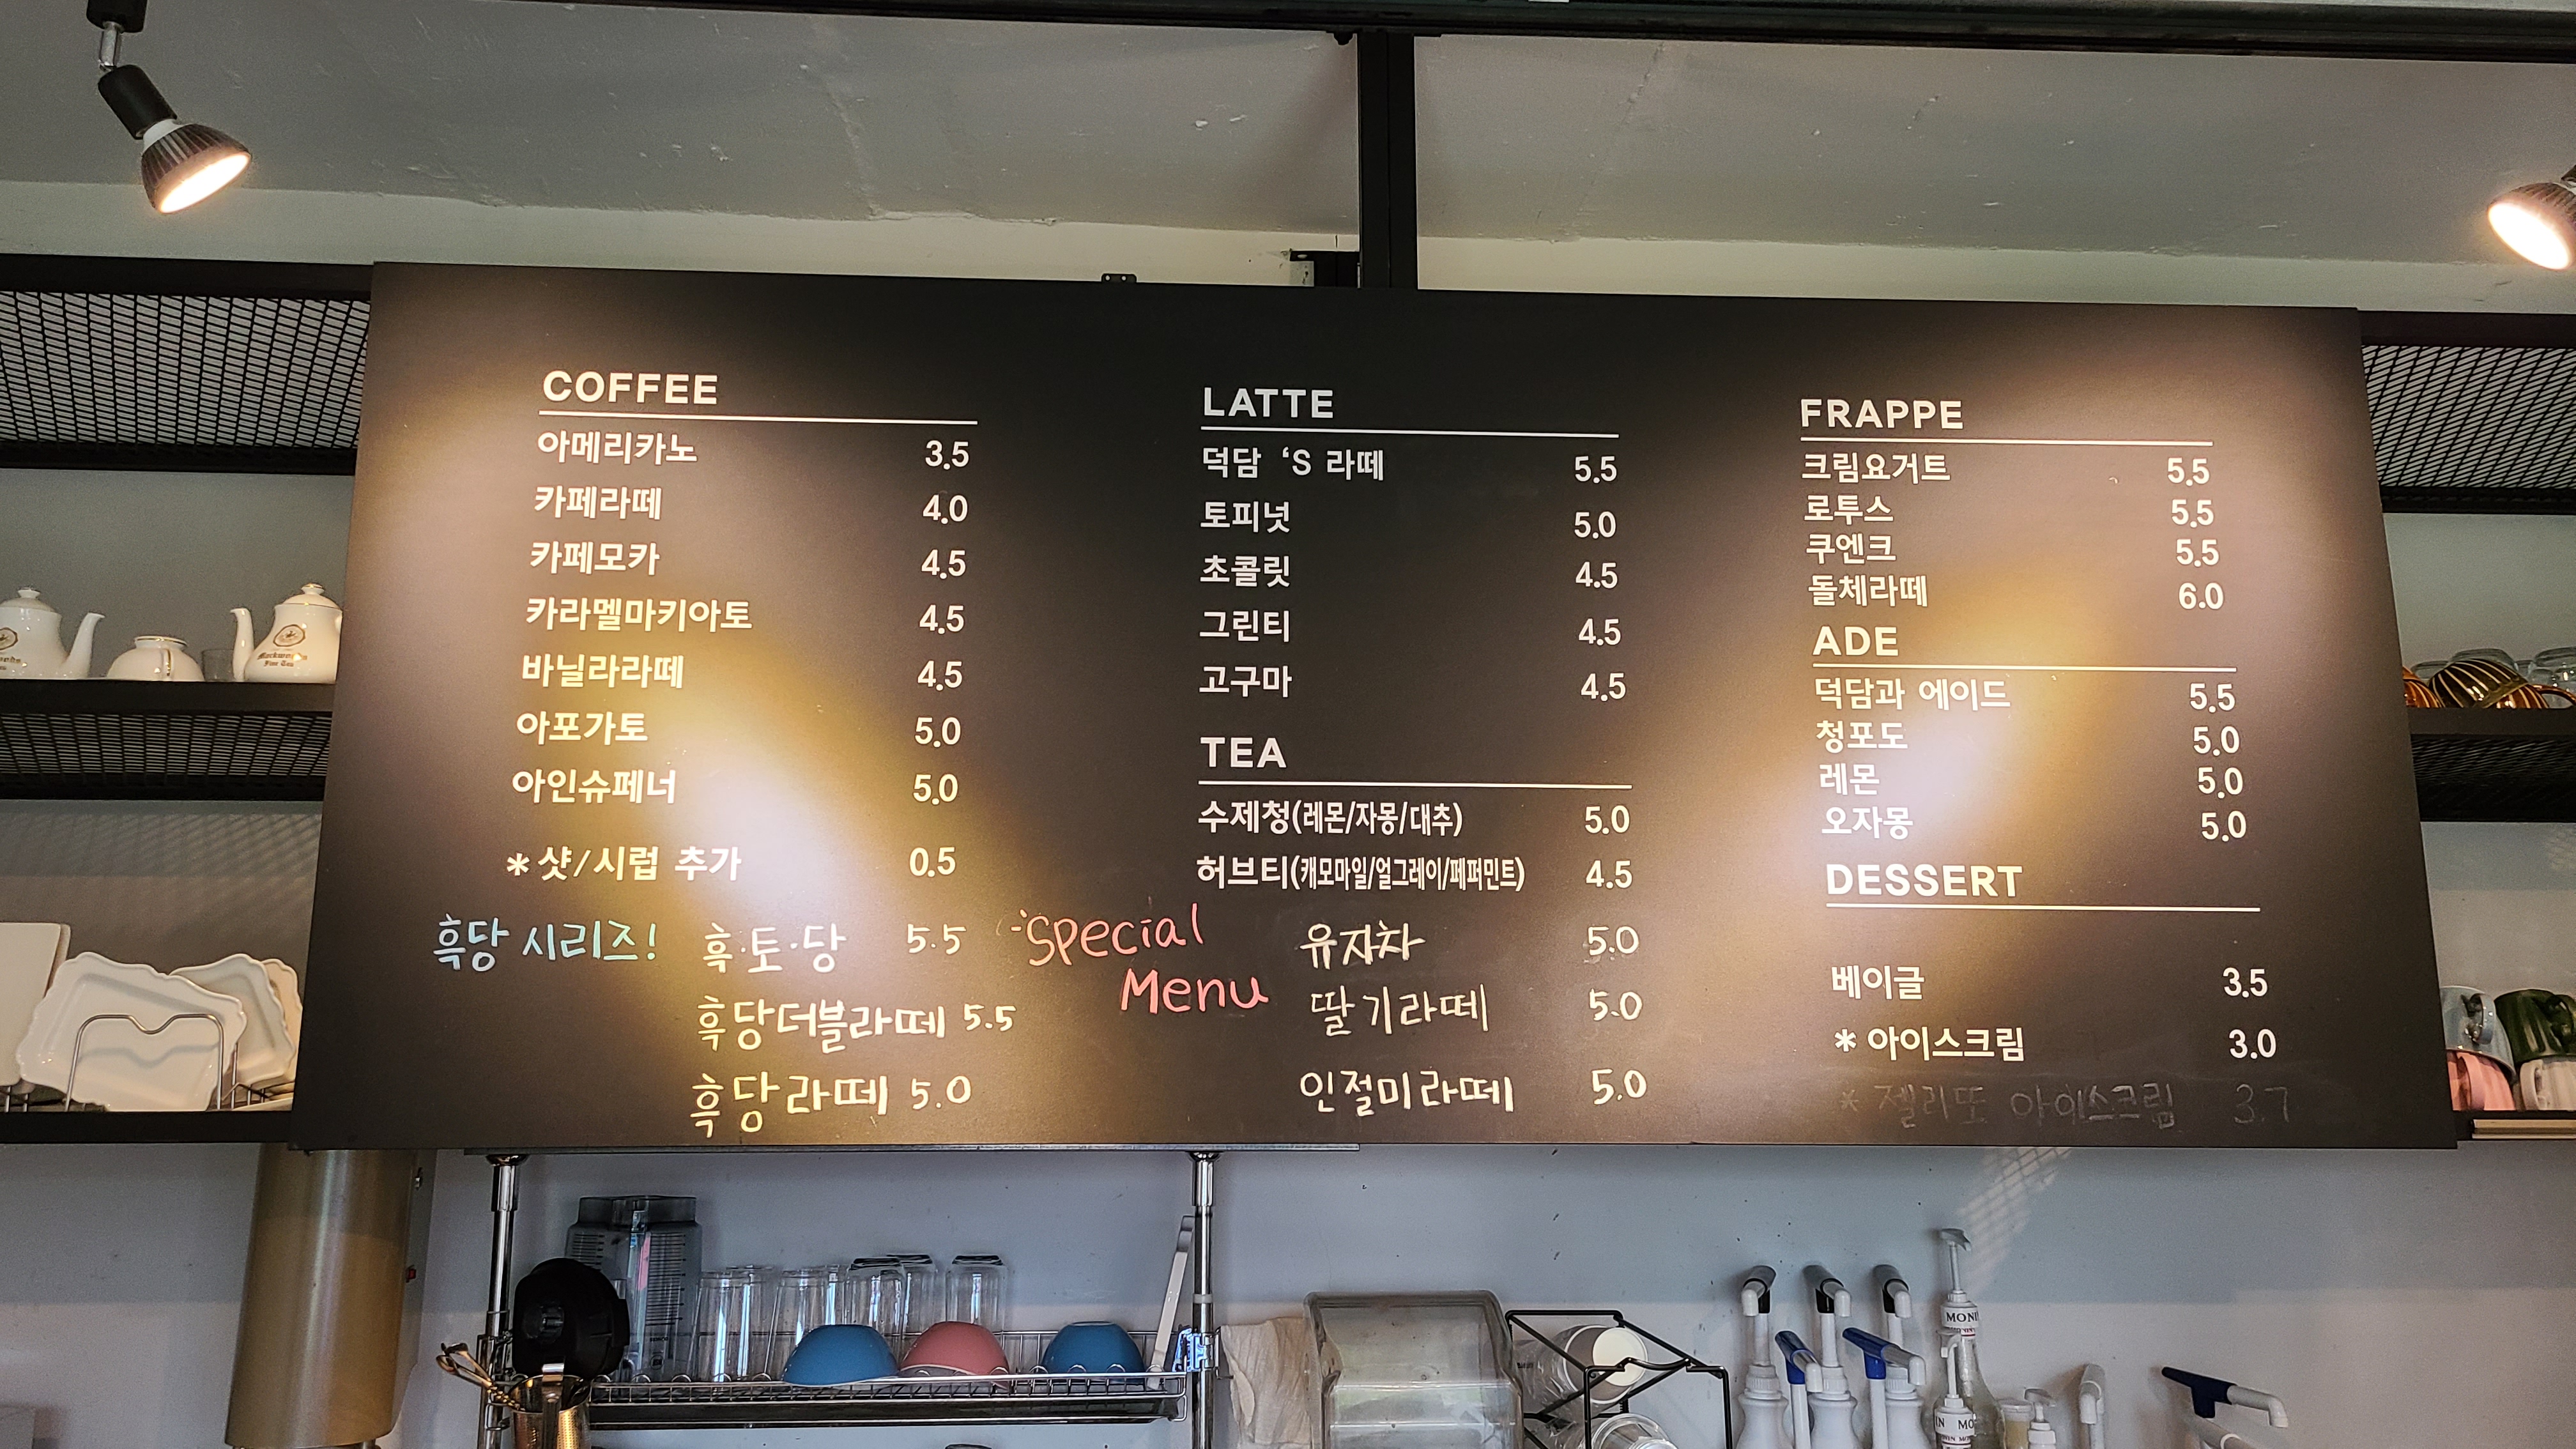 COFFEE
아메리카노 3.5
카페라떼 4.0
카페모카 4.5
카라멜마키아토 4.5
바닐라라떼 4.5
아포가토 5.0
아인슈페너 5.0
*샷/시럽 추가 0.5
흑당 시리즈! 흑·토·당 5.5
흑당더블라떼 5.5
흑당라떼 5.0
LATTE
덕담 ‘S 라떼 5.5
토피넛 5.0
초콜릿 4.5
그린티 4.5
고구마 4.5
TEA
수제청(레몬/자몽/대추) 5.0
허브티(캐모마일/얼그레이/페퍼민트) 4.5
Special
Menu
유자차 5.0
딸기라떼 5.0
인절미라떼 5.0
FRAPPE
크림요거트 5.5
로투스 5.5
쿠엔크 5.5
돌체라떼 6.0
ADE
덕담과 에이드 5.5
청포도 5.0
레몬 5.0
오자몽 5.0
DESSERT
베이글 3.5
* 아이스크림 3.0
* 젤리또 아이스크림 3.7